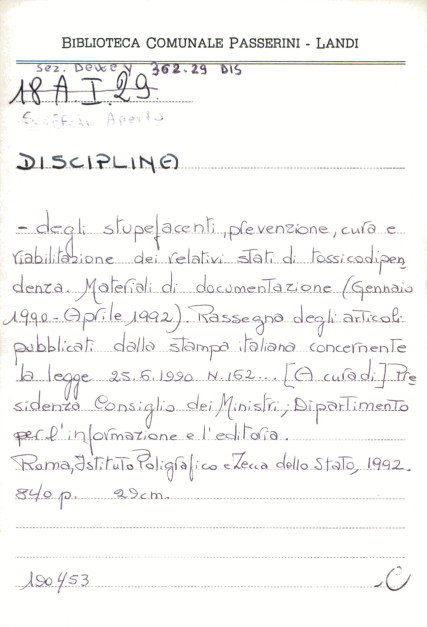 BIBLIOTECA COMUNALE PASSERINI - LANDI
Sez. Dewey 362.29 DIS
18 A. I. 29
Aperto
DISCIPLINA
- degli stupefacenti, prevenzione, cura e
riabilitazione dei relativi stati di tossicodipen
denza. Materiali di documentazione (Gennaio
1990 - Aprile 1992). Rassegna degli articoli
pubblicati dalla stampa italiana concernente
la legge 25.6.1990 N. 162... [A cura di] Pre
sidenza Consiglio dei Ministri; Dipartimento
per l'informazione e l'editoria.
Roma, Istituto Poligrafico e Zecca dello Stato, 1992.
840 p. 29 cm.
190453